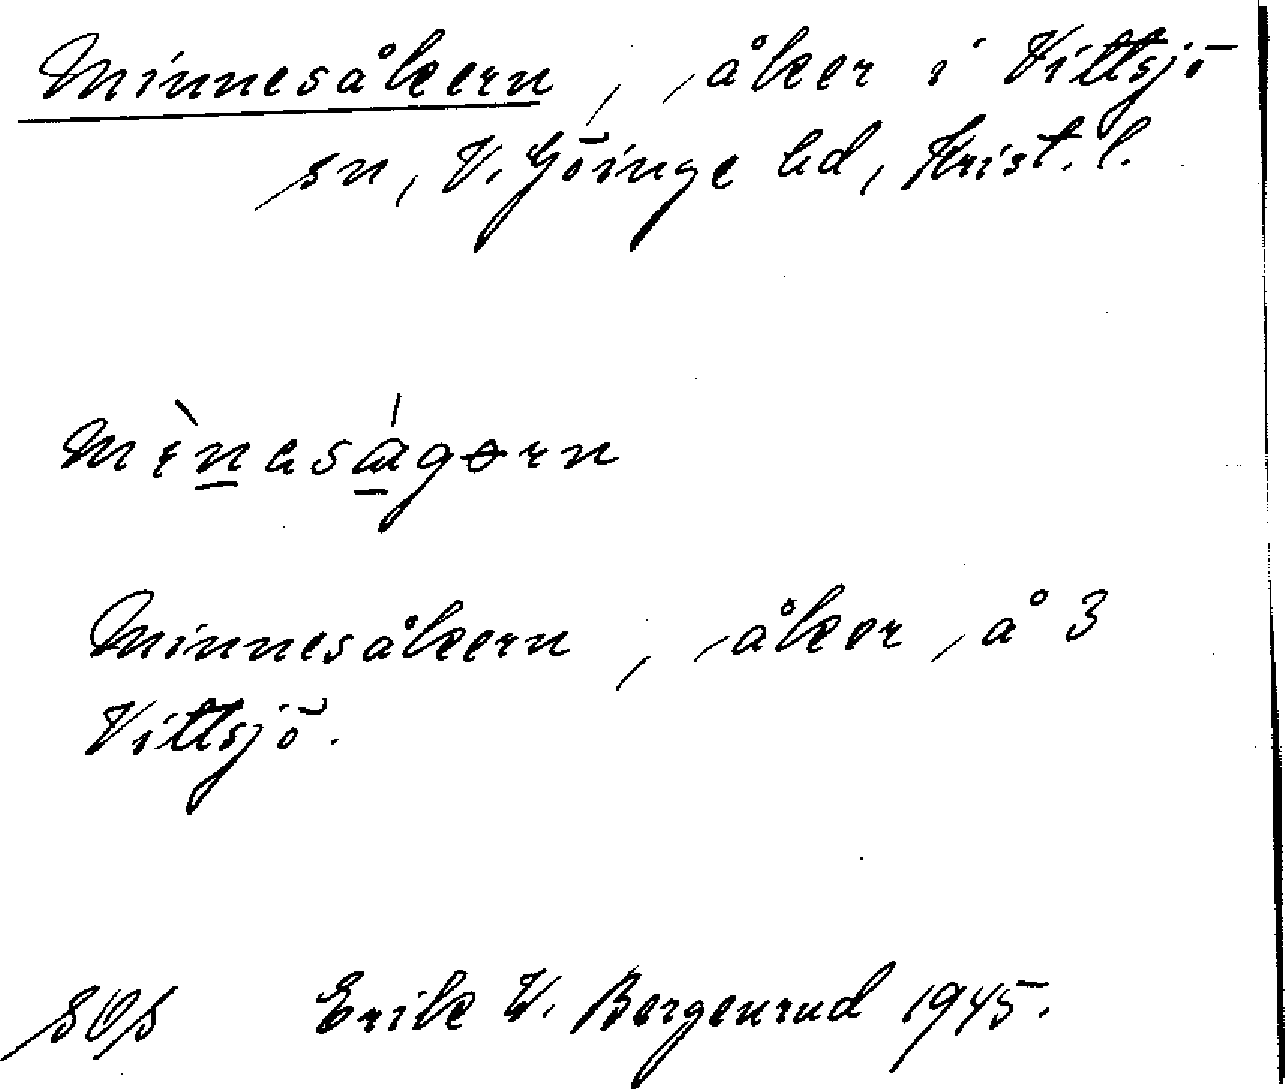 Minnesåkern, åker i Vittsjö
sn, V. Göinge hd, Krist. l.
Minnesåkern, åker, å 3
Vittsjö.
Erik W. Bergenrud 1945.